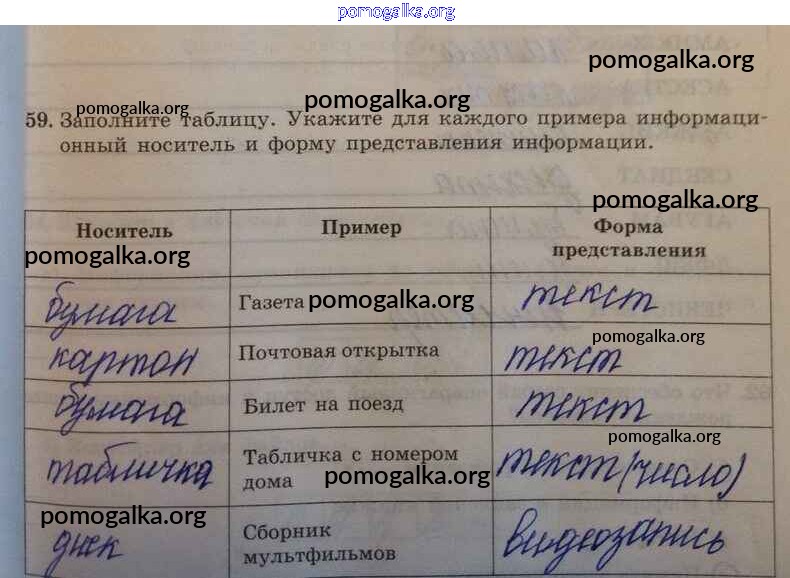 pomogalka.org
pomogalka.org
pomogalka.org
pomogalka.org
59. Заполните таблицу. Укажите для каждого примера информаци-
онный носитель и форму представления информации.
pomogalka.org
Носитель Пример Форма
представления
pomogalka.org
бумага Газета pomogalka.org текст
pomogalka.org
картон Почтовая открытка текст
бумага Билет на поезд текст
pomogalka.org
табличка Табличка с номером текст (число)
дома pomogalka.org
pomogalka.org
диск Сборник видеозапись
мультфильмов